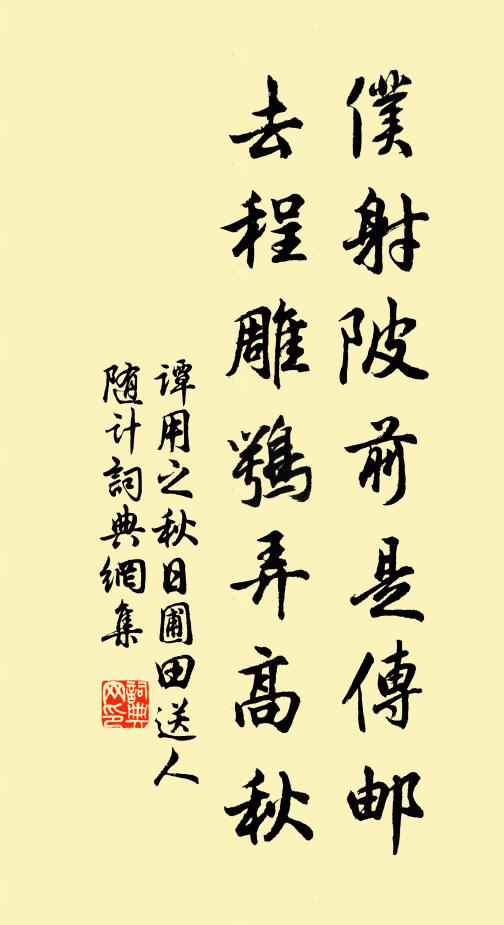 僕射陂前是傳邮
去程雕鶚弄高秋
谭用之秋日圃田送人
随计詞典網集
詞典
网印